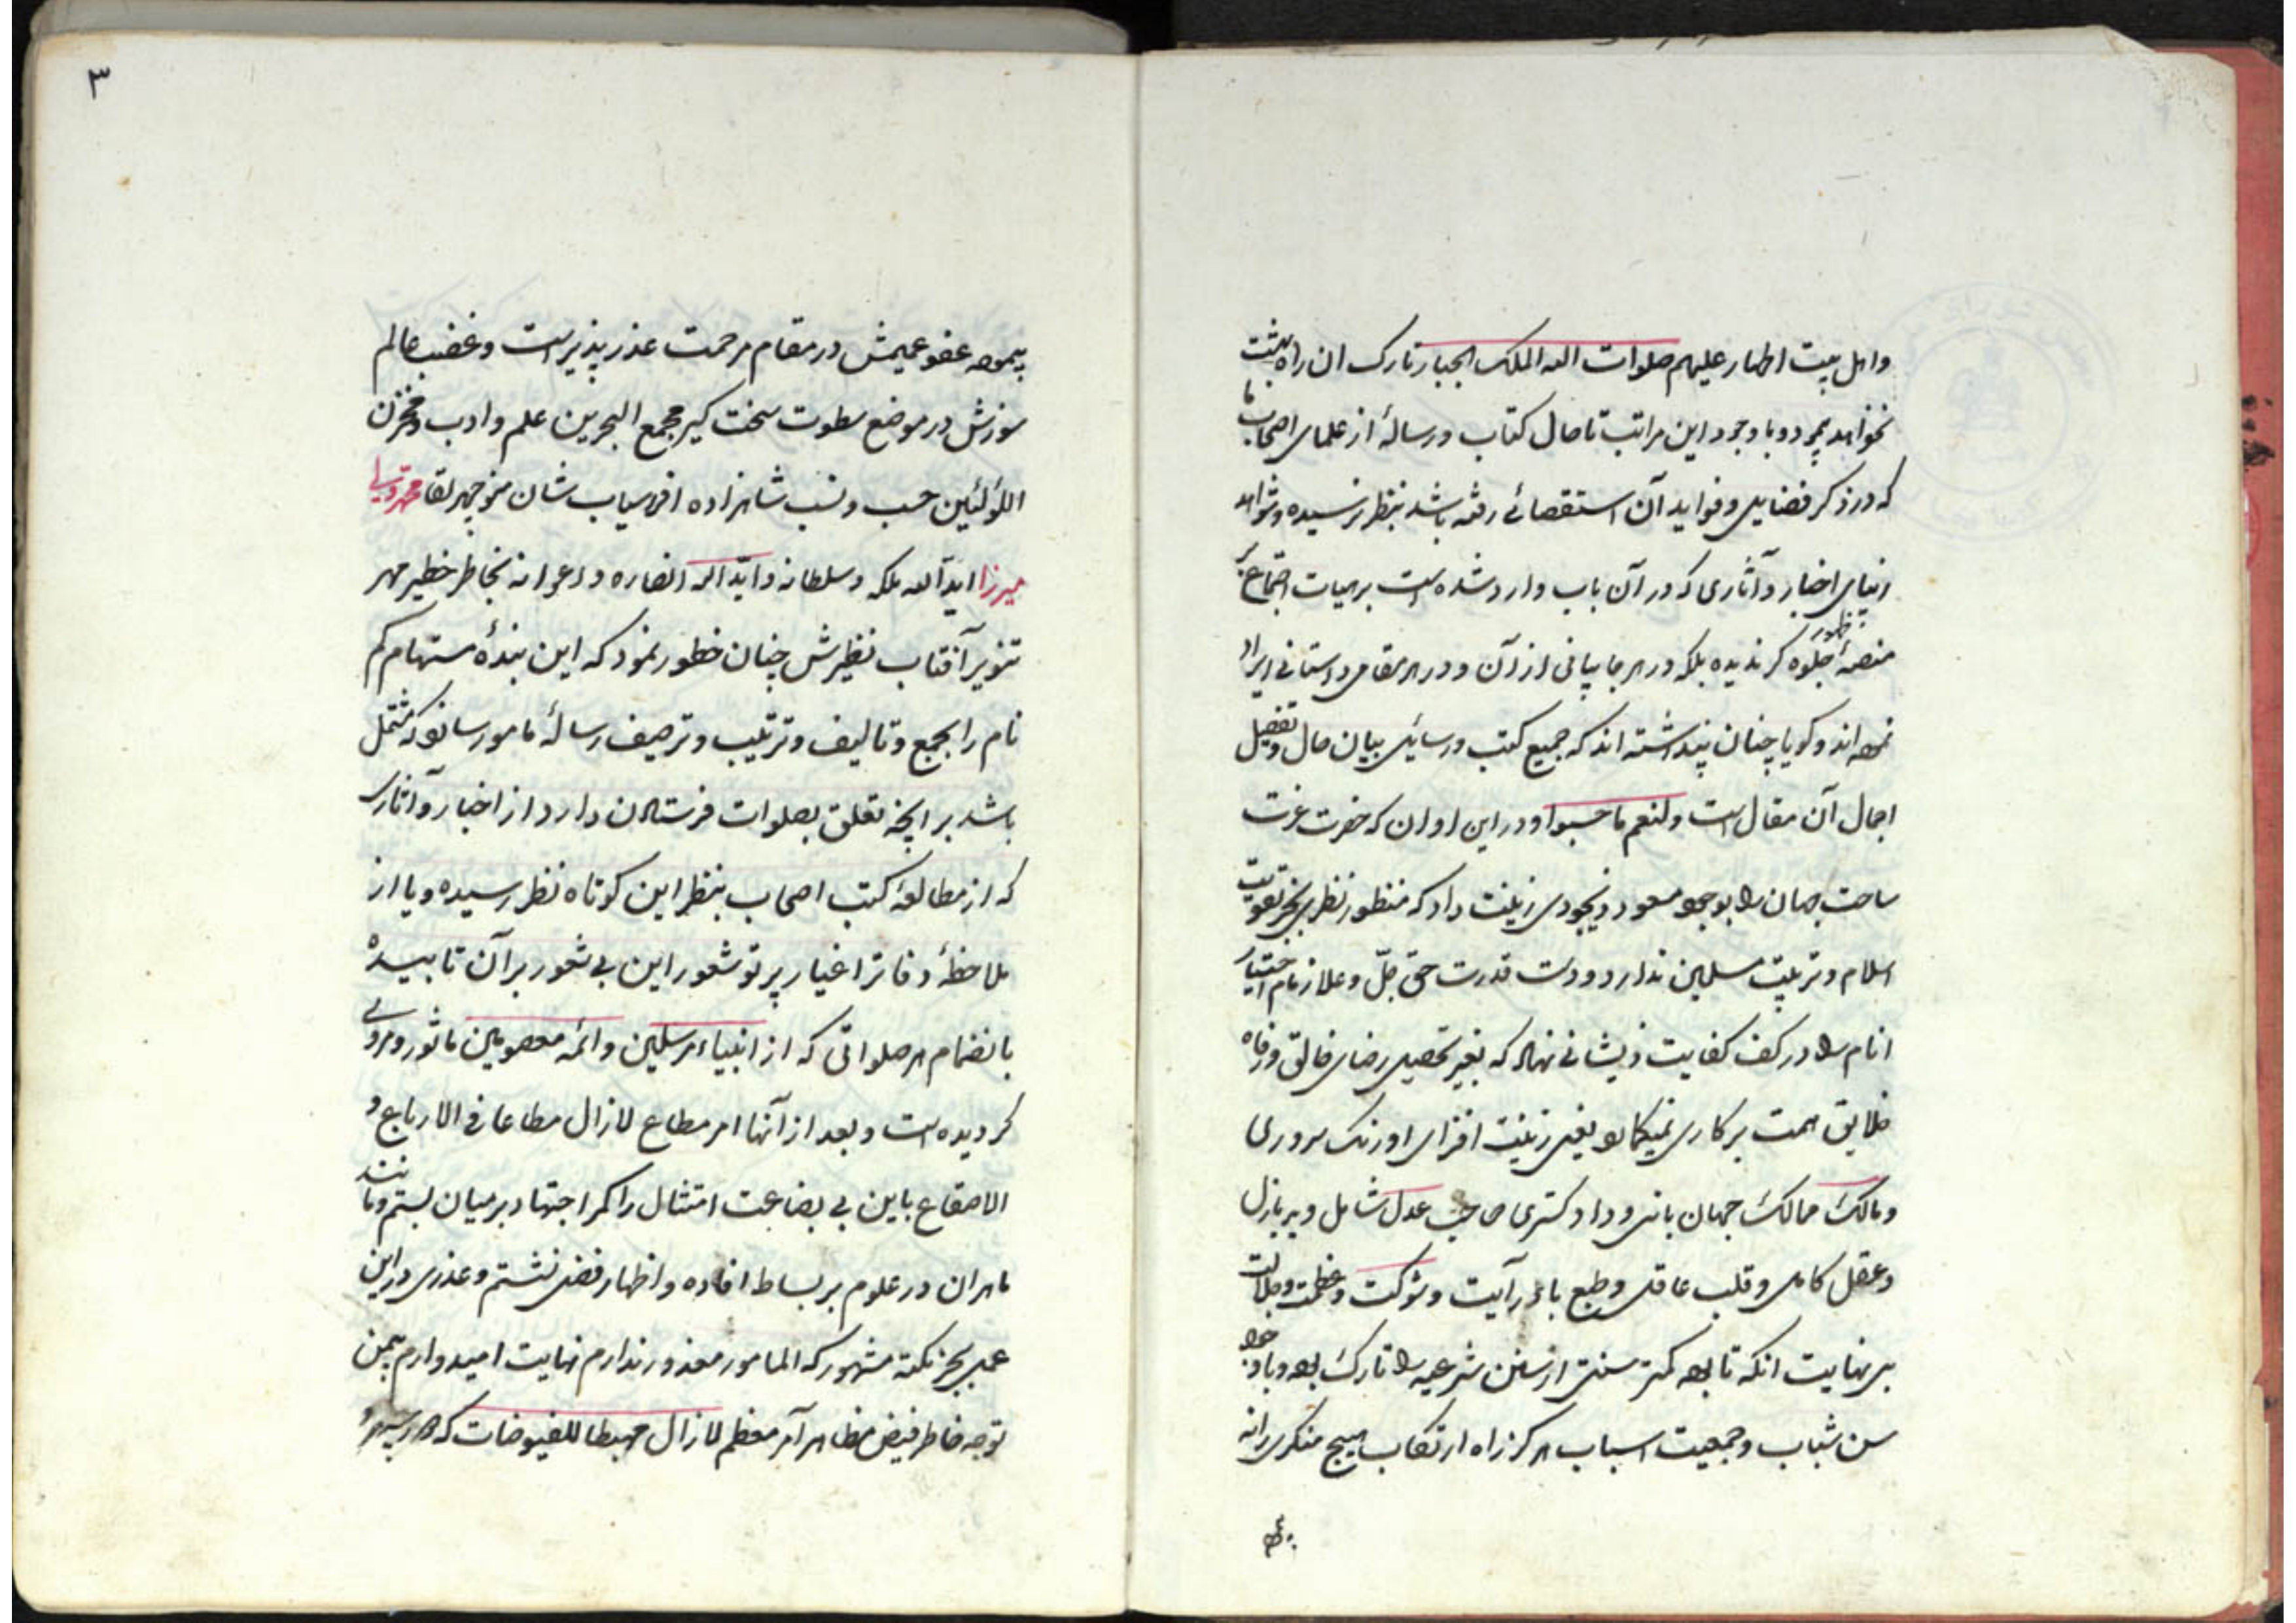 واهل بیت اطهار علیهم صلوات الله الملک الجبار تارک ان راه بهشت
نخواهد پیمود و با وجود این مراتب تا حال کتاب و رسالۀ از علمای اصحاب ما
که در ذکر فضایل و فواید آن استقصائی رفته باشد بنظر نرسیده و شواهد
زیبای اخبار و آثاری که در آن باب وارد شده است بر هیات اجتماع بر
منصۀ ظهور جلوه کر ندیده بلکه در هر جا بیانی از آن و در هر مقامی داستانی ایراد
نموده اند و کویا چنان پنداشته اند که جمیع کتب و رسایل بیان حال و تفصیل
اجمال آن مقال است ولنعم ما حسبوا و در این اوان که حضرت عزت
ساحت جهان را بوجود مسعود ذیجودی زینت داد که منظور نظری بجز تقویت
اسلام و تربیت مسلمین ندارد و دست قدرت حق جلّ و علا زمام اختیار
انام را در کف کفایت ذیشانی نهاد که بغیر تحصیل رضای خالق و رفاه
خلایق همت بر کاری نمیکمارد یعنی زینت افزای اورنک سروری
ومالک ممالک جهان بانی و داد کستری صاحب عدل شامل و ید باذل
وعقل کامل و قلب عاقل وطبع با درآیت و شوکت و عظمت و جلالت
بی نهایت انکه تا بوده کمتر سنتی از سنن شرعیه را تارک بوده و با وجود
سن شباب و جمعیت اسباب هرکز راه ارتکاب هیچ منکری را نه
۳
پیموده عفو عمیمش در مقام مرحمت عذر پذیر است و غضب عالم
سوزش در موضع سطوت سخت کیر مجمع البحرین علم و ادب و مخزن
اللؤلئین حسب و نسب شاهزاده افراسیاب شان منوچهر لقا محمد ولی
میرزا ایدّ الله ملکه و سلطانه و ایّد الله انصاره و اعوانه بخاطر خطیر مهر
تنویر آفتاب نظیرش چنان خطور نمود که این بندۀ مستهام کم
نام را بجمع و تالیف و ترتیب و ترصیف رسالۀ مامور سازد که مشتمل
باشد بر انچه تعلق بصلوات فرستادن دارد از اخبار و آثاری
که از مطالعۀ کتب اصحاب بنظر این کوتاه نظر رسیده و یا از
ملاحظۀ دفاتر اغیار پرتو شعور این بی شعور بر آن تابیده
بانضمام هر صلواتی که از انبیاء مرسلین و ائمه معصومین ماثور و مروی
کردیده است و بعد از آنها امر مطاع لازال مطاعا فی الارباع و
الاصقاع باین بی بضاعت امتثال را کمر اجتهاد بر میان بستم و مانند
ماهران در علوم بر بساط افاده و اظهار فضل نشستم و عذری در این
عمل بجز نکته مشهور که المامور معذور ندارم نهایت امیدوارم بیمن
توجه خاطر فیض مظاهر آمر معظم لازال مهبطا للفیوضات که